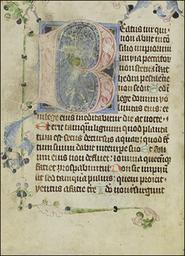 Beatus vir qui
non abiit in
silio impiorum
in via peccator
non stetit et in
thedra pestilen
non sedit Sed in
lege domini vo
luntas eius et in
lege eius meditabitur die ac nocte
Et erit tanquam lignum quod planta
tum est secus decursus aquar quod
tum suum dabit in tempore suo Et foli
um eius non defluet et omnia
faciet prosperabuntur Non sic impii
sic sed tanquam pulvis quem proicit
ventus a facie terre Ideo non resurgunt